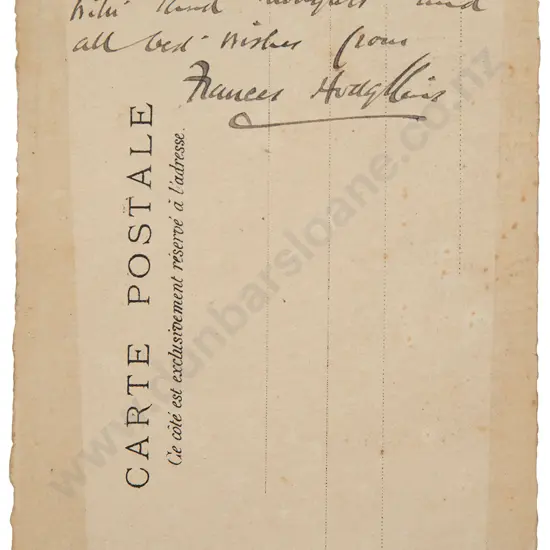 with kind thoughts and
all best wishes from
Frances Hodgkins
CARTE POSTALE
Ce côté est exclusivement réservé à l'adresse.
www.dunbarsloane.co.nz